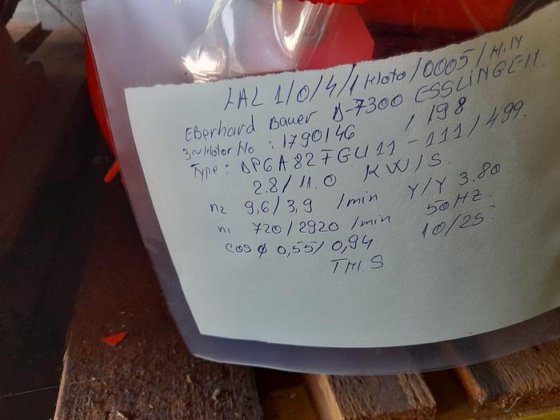 LAL 1/0/4/1 Kloto/0005/H.M
Eberhard Bauer D-7300 ESSLINGEN.
3~Motor No : 1790146 / 198
Type : DPGA 82 FGU 11 - 111 / 499.
2.8/11.0 KW/S.
n2 9,6/3,9 /min Y/Y 3.80
n1 720/2920 /min 50HZ.
cos φ 0,55/0,94 10/25